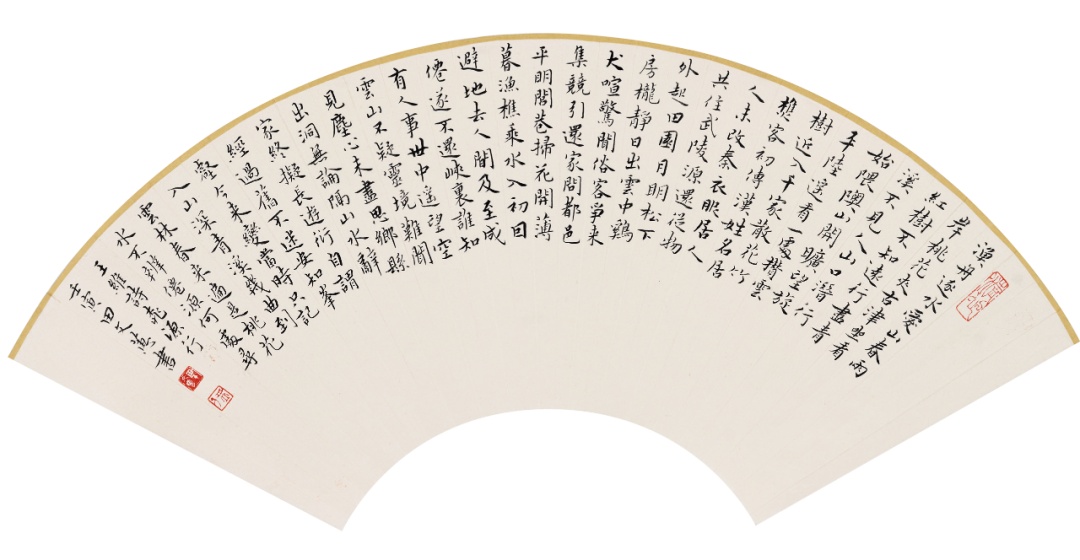 漁舟逐水愛山春兩
岸桃花夾古津坐看
紅樹不知遠行盡青
溪不見人山口潛行
始隈隩山開曠望旋
平陸遙看一處攢雲
樹近入千家散花竹
樵客初傳漢姓名居
人未改秦衣服居人
共住武陵源還從物
外起田園月明松下
房櫳靜日出雲中鷄
犬喧驚聞俗客爭来
集競引還家問都邑
平明閭巷掃花開薄
暮漁樵乘水入初因
避地去人間及至成
僊遂不還峽裏誰知
有人事世中遥望空
雲山不疑靈境難聞
見塵心未盡思鄉縣
出洞無論隔山水辭
家終擬長遊衍自謂
經過舊不迷安知峯
壑今来變當時只記
入山深青溪幾曲到
雲林春来遍是桃花
水不辨僊源何處尋
王維詩桃源行
壬寅田文惠書